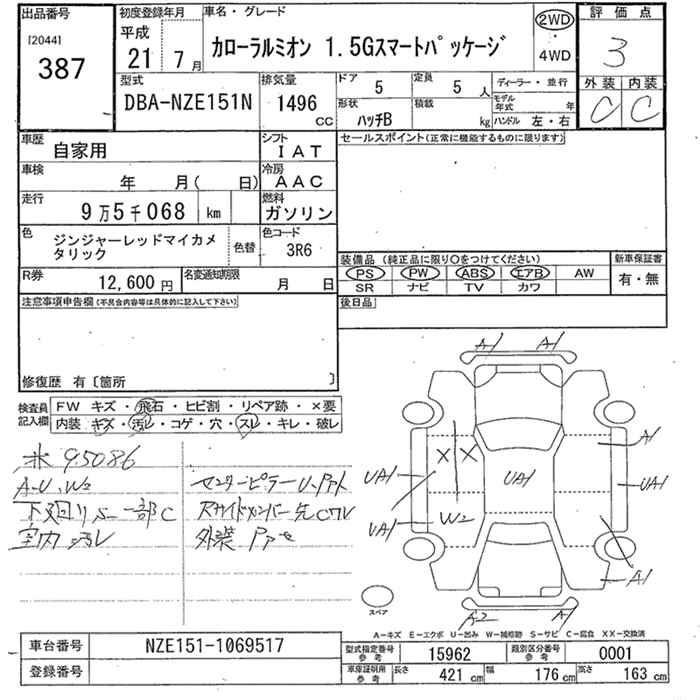 出品番号
[2044]
387
初度登録年月
平成
21年 7月
車名・グレード
カローラルミオン 1.5Gスマートパッケージ
2WD
4WD
評価点
3
外装 内装
C C
型式
DBA-NZE151N
排気量
1496 CC
ドア 5
定員 5 人
形状 ハッチB
積載 kg
ディーラー・並行
モデル年式 年
ハンドル 左・右
車歴 自家用
シフト IAT
車検 年 月( 日)
冷房 AAC
走行 9万5千068 km
燃料 ガソリン
色 ジンジャーレッドマイカメタリック
色替
色コード 3R6
R券 12,600円
名変通知期限 月 日
セールスポイント(正常に機能するものに限ります)
装備品(純正品に限り○をつけてください)
PS PW ABS エアB AW
SR ナビ TV カワ
新車保証書
有・無
後日品
注意事項申告欄(不具合内容等は具体的に記入して下さい)
修復歴 有〔箇所 〕
検査員記入欄
FW キズ・飛石・ヒビ割・リペア跡・×要
内装 キズ・汚レ・コゲ・穴・スレ・キレ・破レ
95086
A・U、W2
下廻りS 一部C
室内汚レ
センターピラーU
外装
A1 A1
A1
UA1 X X UA1 UA1
UA1 W2
A1
A2 A1
スペア
A-キズ E-エクボ U-凹み W-補修跡 S-サビ C-腐食 XX-交換済
車台番号 NZE151-1069517
登録番号
型式指定番号 参考 15962
類別区分番号 参考 0001
車庫証明用 参考 長さ 421 cm 幅 176 cm 高さ 163 cm